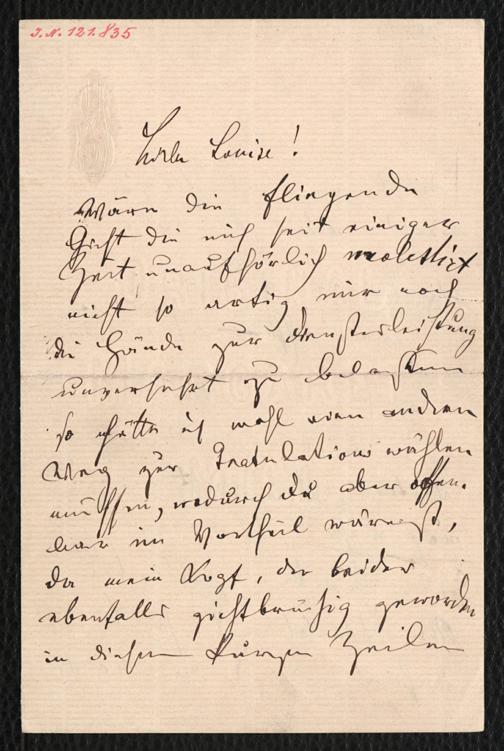 J.N. 121.835
Liebe Louise!
Wäre die fliegende
Gicht die mich seit einiger
Zeit unaufhörlich molestirt
nicht so artig mir noch
die Hände zur Dienstleistung
unversehrt zu belassen
so hätte ich wohl einen andren
Weg zur Gratulation wählen
müssen, wodurch du aber offen-
bar im Vortheil wärest,
da mein Kopf, der leider
ebenfalls gichtbrüchig geworden
in diesen kurzen Zeilen